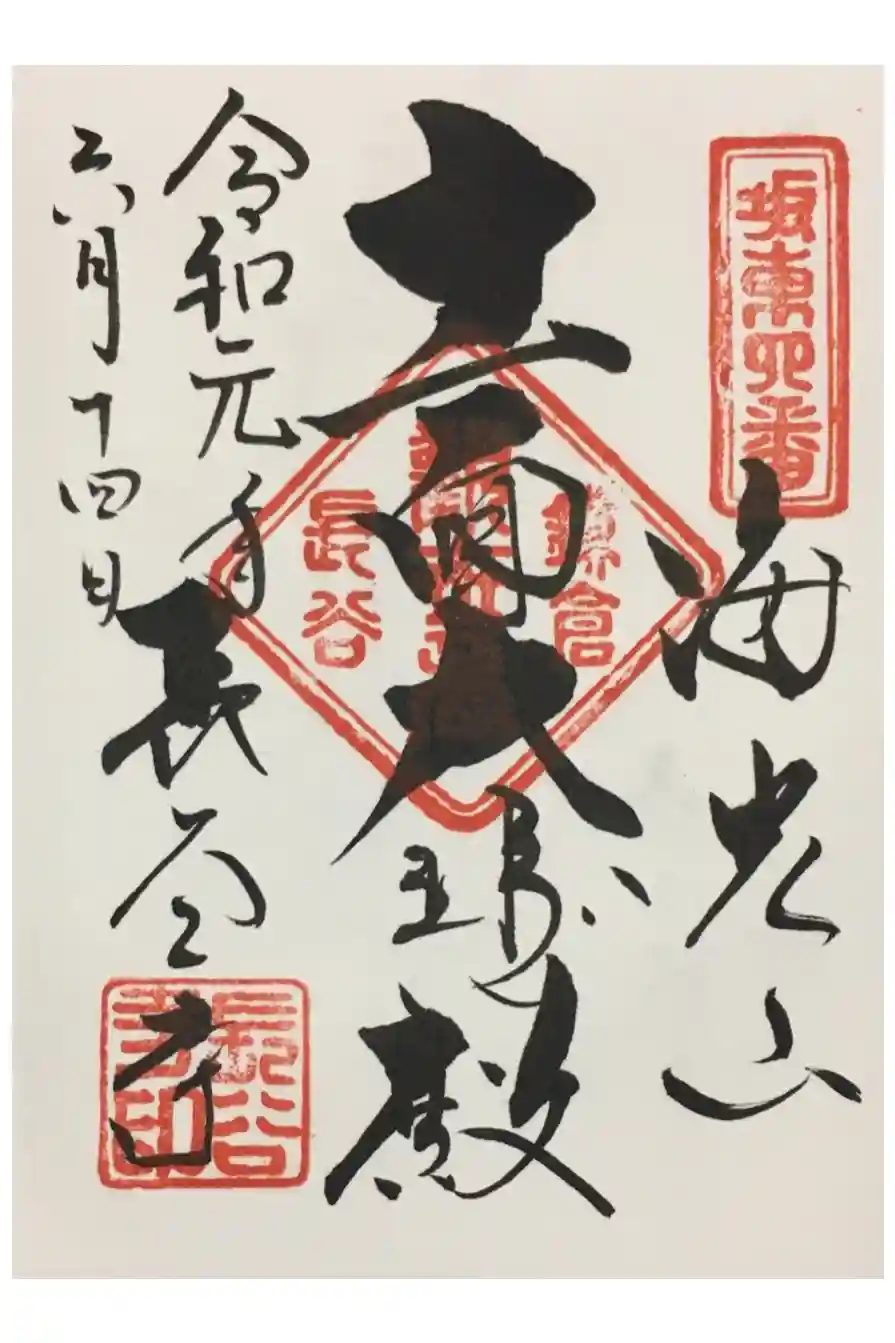 坂東四番
海光山
十一面大悲殿
鎌倉
長谷
令和元年
六月十四日
長谷寺
長谷寺印